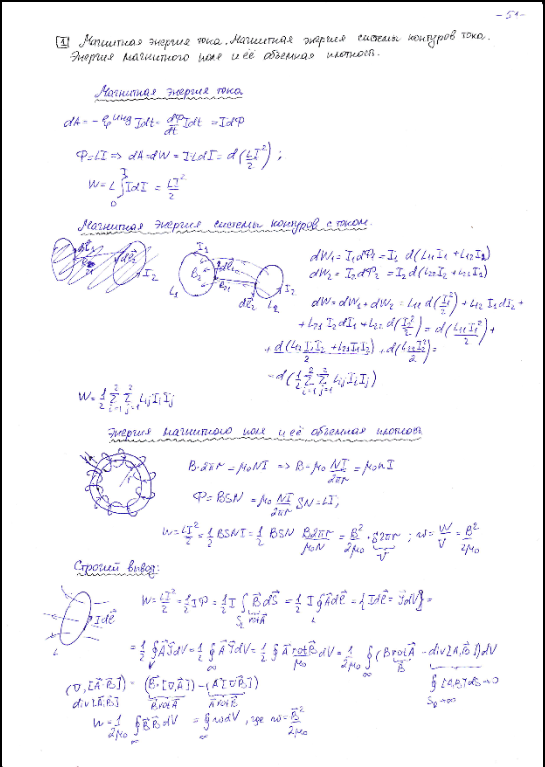 - 51 -
1 Магнитная энергия тока. Магнитная энергия системы контуров тока.
Энергия магнитного поля и её объемная плотность.
Магнитная энергия тока
dA = -ℰ инд Idt = dΦ/dt Idt = IdΦ
Φ = LI ⇒ dA = dW = ILdI = d(LI²/2);
W = L ∫₀ᴵ IdI = LI²/2
Магнитная энергия системы контуров с током.
dW₁ = I₁dΦ₁ = I₁ d(L₁₁I₁ + L₁₂I₂)
dW₂ = I₂dΦ₂ = I₂ d(L₂₂I₂ + L₂₁I₁)
dW = dW₁ + dW₂ = L₁₁ d(I₁²/2) + L₁₂ I₁ dI₂ +
+ L₂₁ I₂ dI₁ + L₂₂ d(I₂²/2) = d(L₁₁I₁²/2) +
+ d(L₁₂I₁I₂ + L₂₁I₁I₂)/2 + d(L₂₂I₂²/2) =
= d(1/2 Σᵢ₌₁² Σⱼ₌₁² Lᵢⱼ Iᵢ Iⱼ)
W = 1/2 Σᵢ₌₁² Σⱼ₌₁² Lᵢⱼ Iᵢ Iⱼ
Энергия магнитного поля и её объемная плотность
B·2πr = μ₀NI ⇒ B = μ₀ NI/2πr = μ₀nI
Φ = BSN = μ₀ NI/2πr SN = LI;
W = LI²/2 = 1/2 BSNI = 1/2 BSN B2πr/μ₀N = B²/2μ₀ · S2πr V ; w = W/V = B²/2μ₀
Строгий вывод:
W = LI²/2 = 1/2 IΦ = 1/2 I ∫ B⃗dS⃗ = 1/2 I ∮ A⃗dℓ⃗ = {Idℓ⃗ = j⃗dV} =
rot A⃗
L Idℓ⃗
= 1/2 ∮ A⃗j⃗dV = 1/2 ∮ A⃗ j⃗dV = 1/2 ∮ A⃗ rotB⃗/μ₀ dV = 1/2μ₀ ∮ (B⃗ rotA⃗ - div[A⃗,B⃗])dV
(∇,[A⃗·B⃗]) = (B⃗·[∇,A⃗]) - (A⃗[∇B⃗])
div[A⃗,B⃗] B⃗rotA⃗ A⃗rotB⃗
W = 1/2μ₀ ∮ B⃗B⃗dV = ∮ wdV, где w = B⃗²/2μ₀